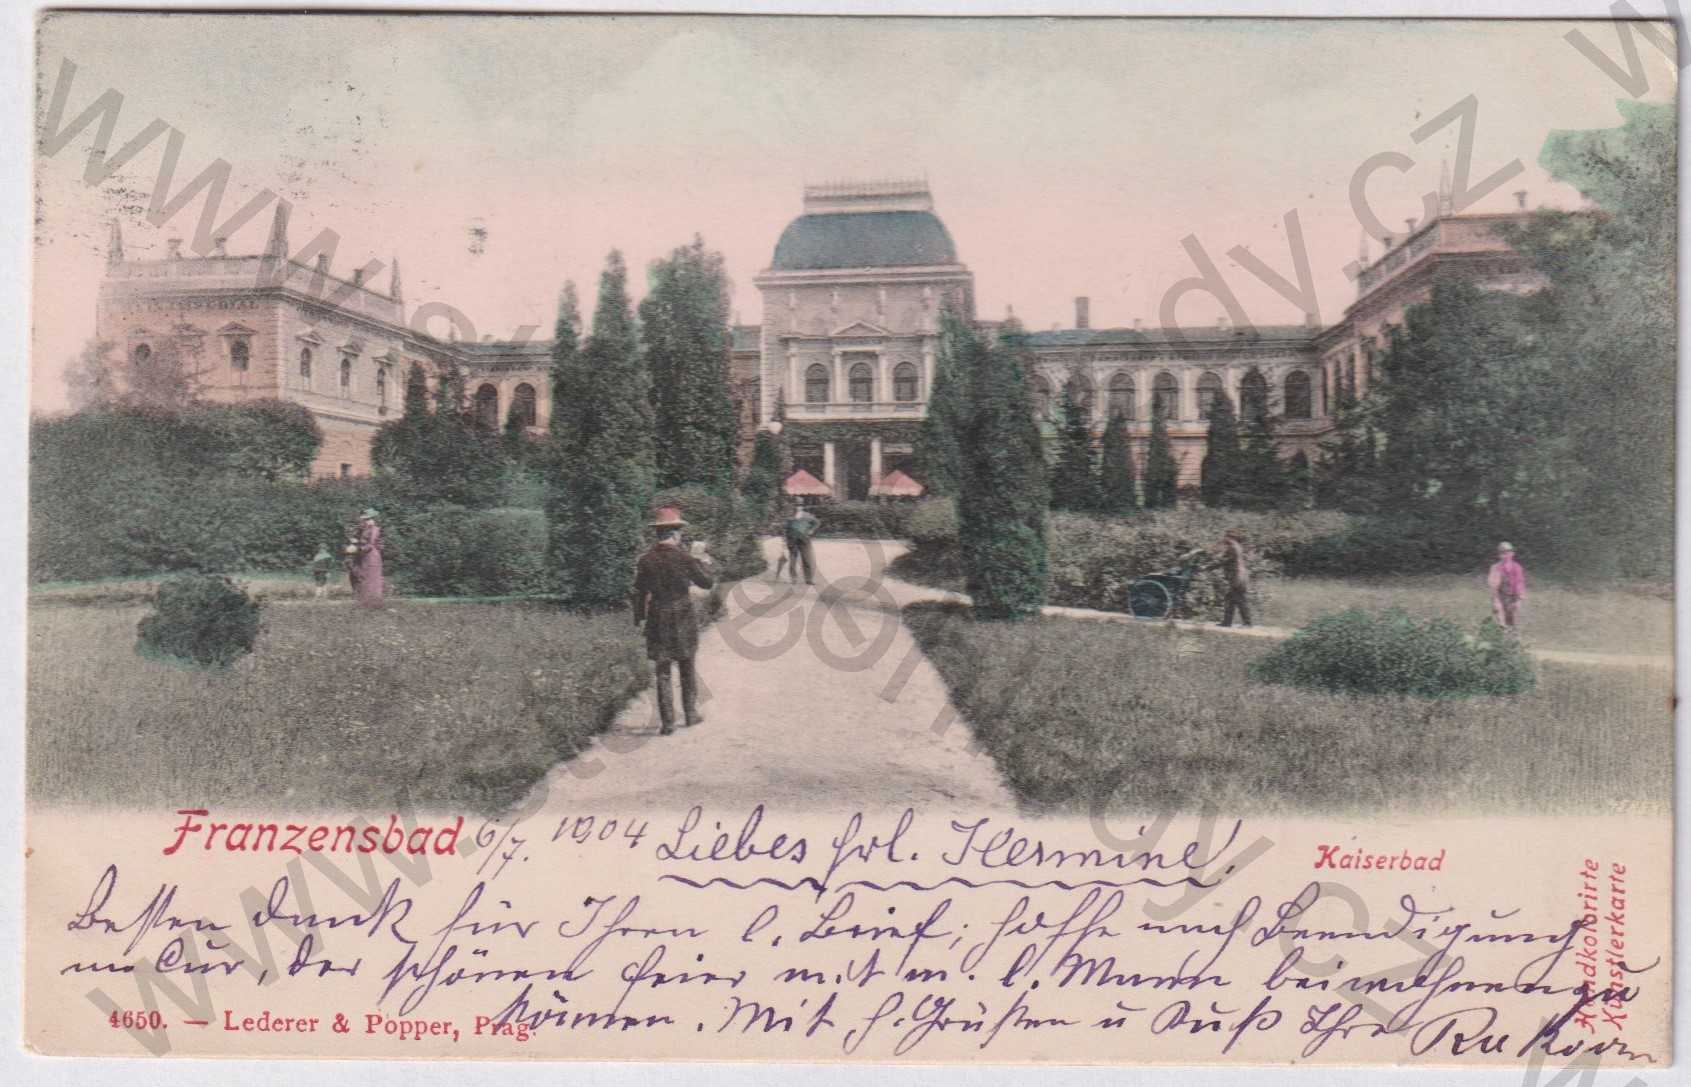 Franzensbad 6/7. 1904 Liebes Frl. Hermine!
Kaiserbad
Besten Dank für Ihren l. Brief; hoffe nach Beendigung
m. Cur, der schönen Feier mit m. l. Mann beiwohnen zu
können. Mit h. Grüßen u Kuß Ihre
4650. — Lederer & Popper, Prag.
Handkolorirte
Künstlerkarte
www.starepohlednice.cz